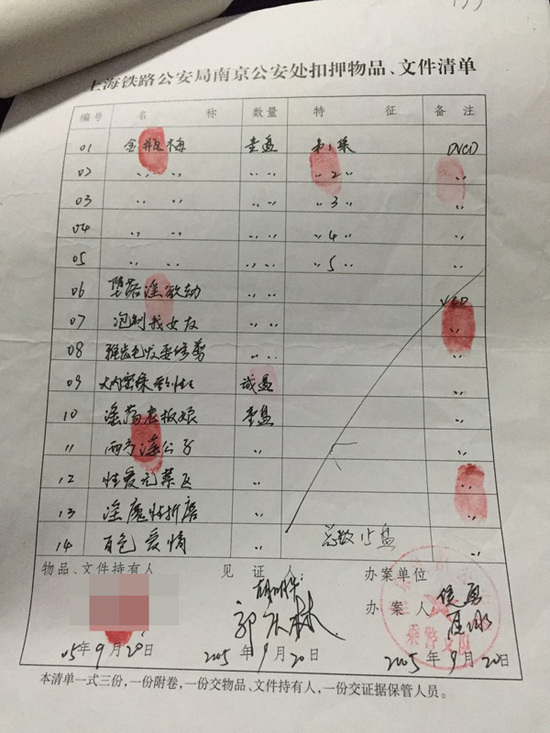 上海铁路公安局南京公安处扣押物品、文件清单
编号 名 称 数量 特 征 备 注
01 金瓶梅 壹盘 第1集 DVCD
02 〃 〃 〃 〃 〃2〃 〃
03 〃 〃 〃 〃 〃3〃 〃
04 〃 〃 〃 〃 〃4〃 〃
05 〃 〃 〃 〃 〃5〃 〃
06 堕落淫 〃 〃 VCD
07 泡制我女友 〃 〃
08 〃 〃
09 贰盘
10 淫荡老板娘 壹盘
11 淫公子 〃
12 性爱元禁区 〃
13 淫魔性折磨 〃
14 百色爱情 〃 总数15盘
物品、文件持有人 见 证 人 办案单位
办 案 人
05年9月20日 2005年9月20日 2005年9月20日
乘警支队
本清单一式三份，一份附卷，一份交物品、文件持有人，一份交证据保管人员。